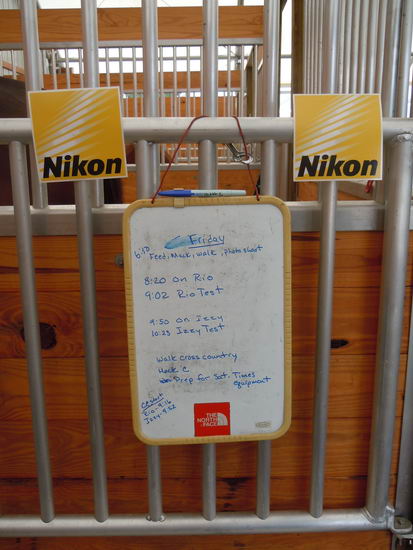 Nikon
Nikon
Friday
6:30
Feed, Muck, walk, photo shoot
8:20 on Rio
9:02 Rio Test
9:50 on Izzy
10:23 Izzy Test
Walk cross country
Hack C
Prep for Sat. Times
equipment
Rio-9:16
Izzy-9:52
THE
NORTH
FACE